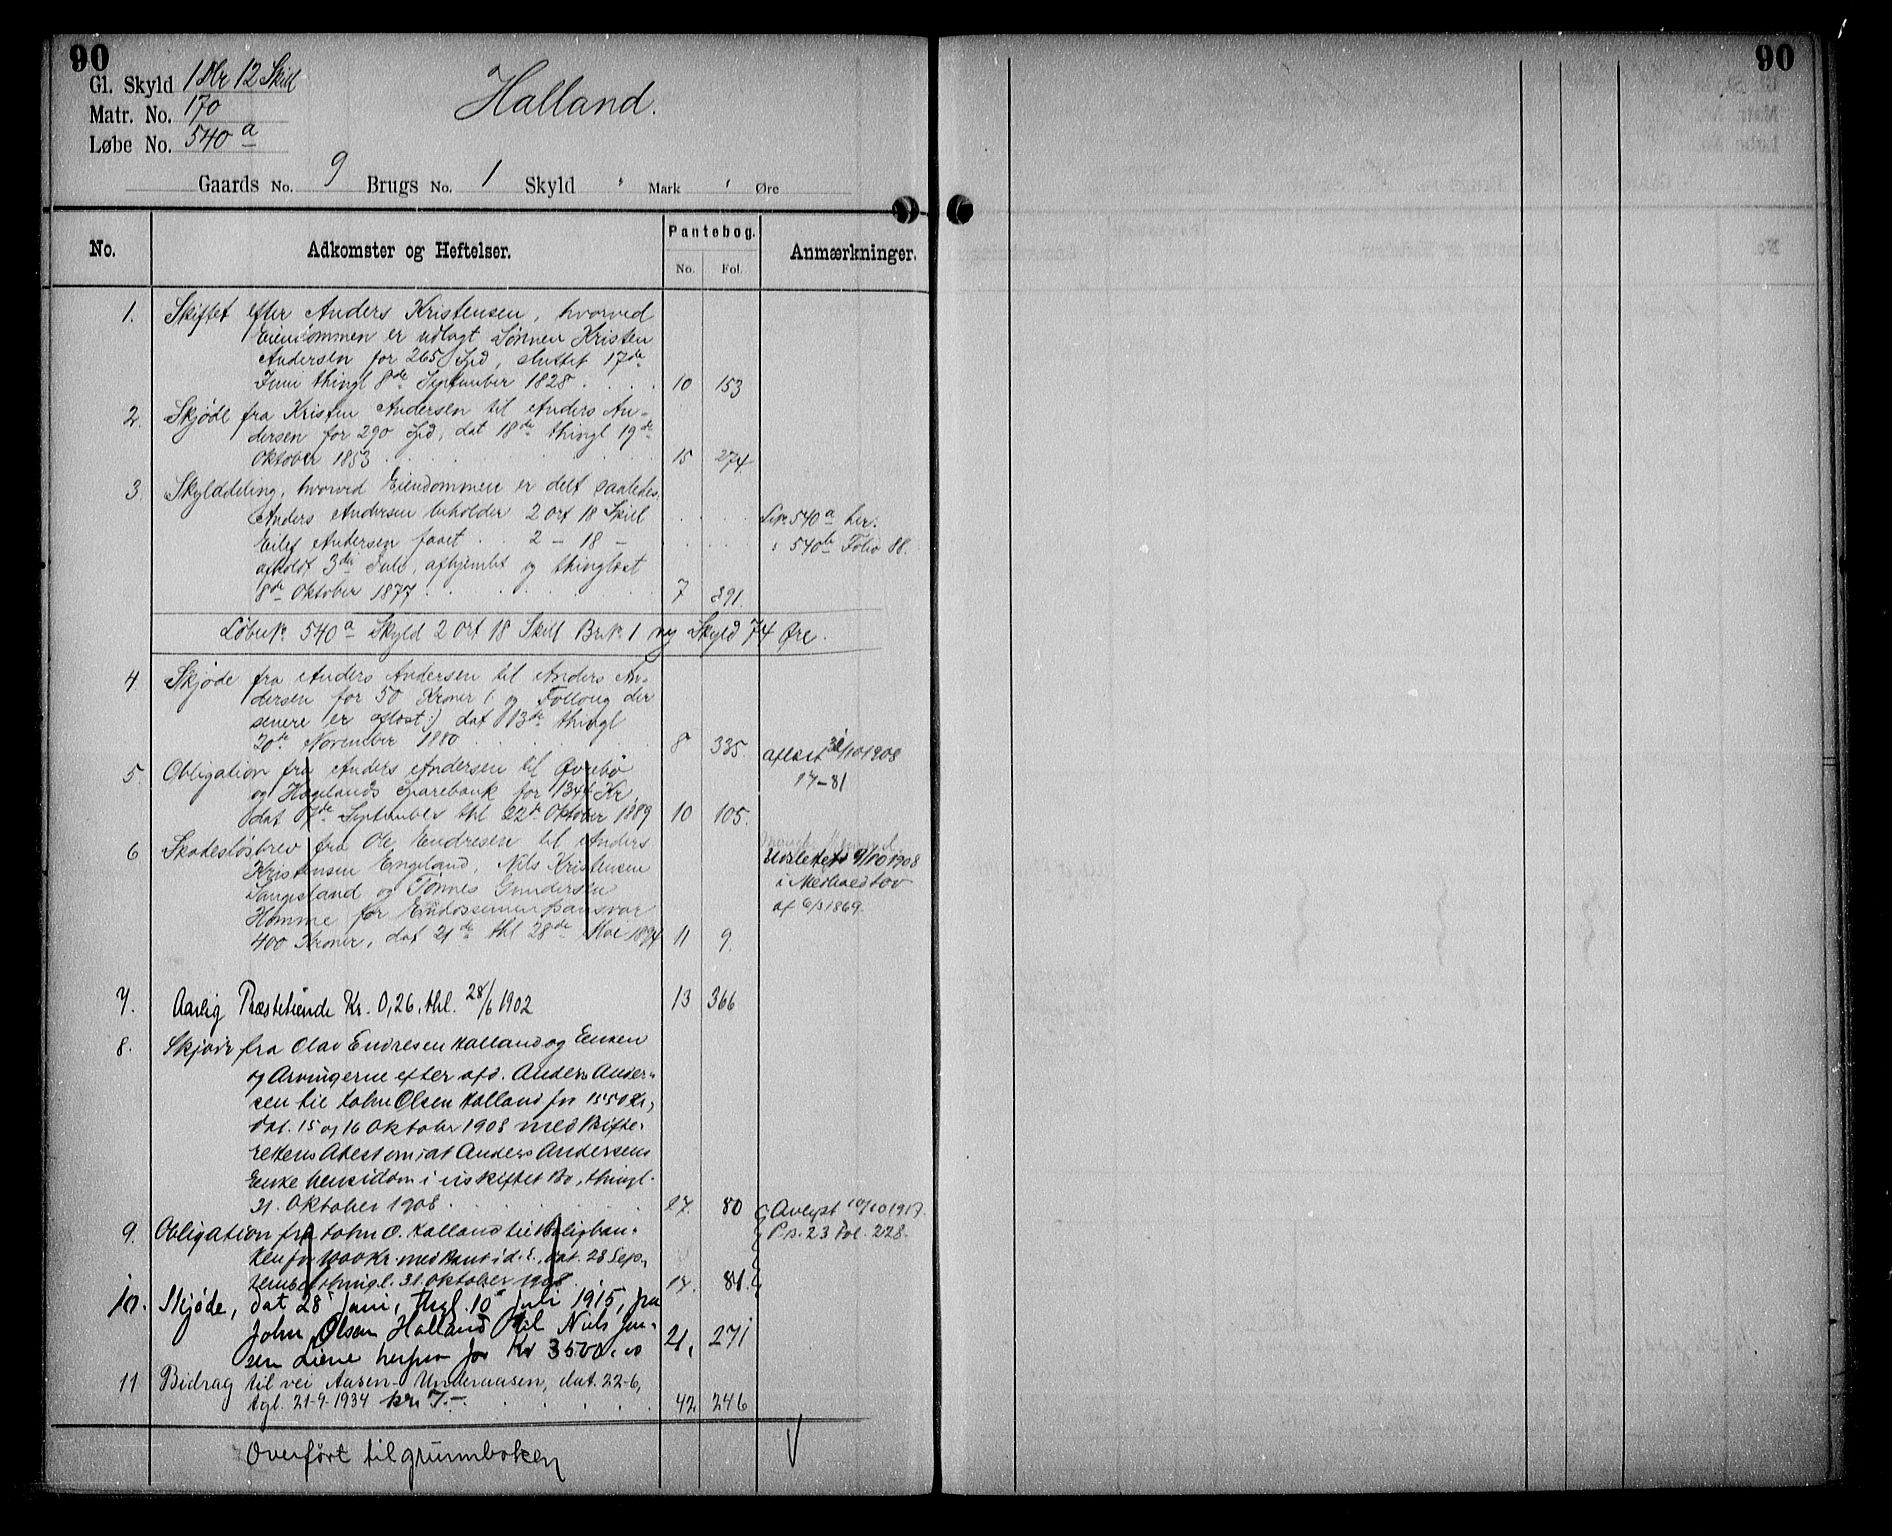 90
90
Gl. Skyld 1 Dlr 12 Skill
Halland.
Matr. No. 170
Løbe No. 540 a
Gaards No. 9 Brugs No. 1 Skyld " Mark " Øre
No. Adkomster og Heftelser. Pantebog. Anmærkninger.
No. Fol.
1. Skiftet efter Anders Kristensen, hvorved
Eiendommen er udlagt Sønnen Kristen
Andersen for 265 Spd, sluttet 17de
Juni thingl 8de September 1828 . . . . 10 153
2. Skjøde fra Kristen Andersen til Anders An-
dersen for 290 Spd, dat 18de thingl 19de
Oktober 1853 . . . 15 274.
3. Skylddeling, hvorved Eiendommen er delt saaledes.
Anders Andersen beholder 2 ort 18 Skill . . . 540 a her.
Eilef Andersen faaet . . 2 – 18 – . . . " 540 b Folio 88.
afholdt 3die Juli, afhjemlet og thinglæst
8de Oktober 1877 . . . 7 391.
Løbe No. 540 a Skyld 2 ort 18 Skill Br.No. 1 ny Skyld 74 Øre.
4. Skjøde fra Anders Andersen til Anders An-
dersen for 50 Kroner (: og Folloug der
senere er afløst:) dat 13de thingl
20de November 1880 . . . 8 335.
5. Obligation fra Anders Andersen til Øvrebø
og Hægelands Sparebank for 1344 Kr
dat 7de September thl 22de Oktober 1889 10 105.
aflæst 31/10 1908
17–81
6 Skadesløsbrev fra Ole Endresen til Anders
Kristensen Engeland, Nils Kristensen
Langeland og Tønnes Gundersen
Homme for Endossementsansvar
400 Kroner, dat 21de thl 28de Mai 1894 11 9.
Udslettet 9/10 1908
i Medhold Lov
af 6/3 1869.
7. Aarlig Præstetiende Kr. 0,26, thl. 28/6 1902 13 366
8. Skjøde fra Olav Endresen Halland og Enken
og Arvingerne efter afd. Anders Ander-
sen til John Olsen Halland for 1550 Kr,
dat. 15 og 16 Oktober 1908 med Skifte-
rettens Atest om at Anders Andersens
Enke hensidder i uskiftet Bo, thingl.
31. Oktober 1908 . . . 17. 80
9. Obligation fra John O. Halland til Boligban-
ken for 1000 Kr. med Pant i d. E., dat. 28 Sep-
tember thingl. 31. Oktober 1908 . 17. 81.
Avlyst 10/10 1917.
P.B. 23 Fol. 228.
10. Skjøde, dat 28 Juni, thgl. 10 Juli 1915, fra
John Olsen Halland til Niels Jen-
sen Liene herpaa for Kr 3500,00 21. 271
11 Bidrag til vei Aasen-Underaasen, dat. 22-6,
tgl. 21-9-1934 kr. 7.– . . . 42 246
Overført til grunnboken V